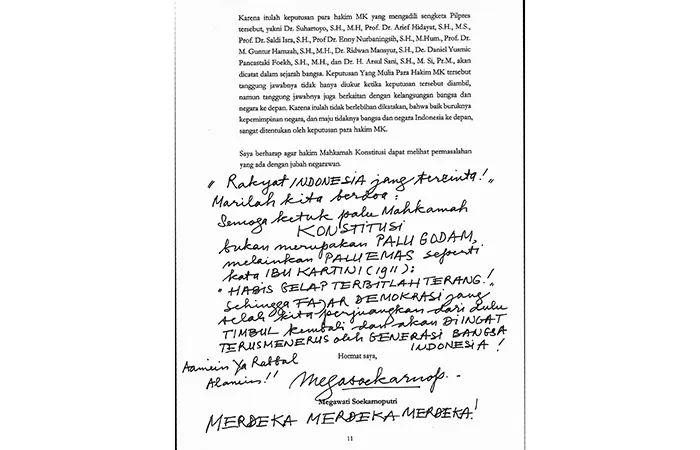 Karena itulah keputusan para hakim MK yang mengadili sengketa Pilpres
tersebut, yakni Dr. Suhartoyo, S.H., M.H, Prof. Dr. Arief Hidayat, S.H., M.S.,
Prof. Dr. Saldi Isra, S.H., Prof Dr. Enny Nurbaningsih, S.H., M.Hum., Prof. Dr.
M. Guntur Hamzah, S.H., M.H., Dr. Ridwan Mansyur, S.H., De. Daniel Yusmic
Pancastaki Foekh, S.H., M.H., dan Dr. H. Arsul Sani, S.H., M. Si, Pr.M., akan
dicatat dalam sejarah bangsa. Keputusan Yang Mulia Para Hakim MK tersebut
tanggung jawabnya tidak hanya diukur ketika keputusan tersebut diambil,
namun tanggung jawabnya juga berkaitan dengan kelangsungan bangsa dan
negara ke depan. Karena itulah tidak berlebihan dikatakan, bahwa baik buruknya
kepemimpinan negara, dan maju tidaknya bangsa dan negara Indonesia ke depan,
sangat ditentukan oleh keputusan para hakim MK.
Saya berharap agar hakim Mahkamah Konstitusi dapat melihat permasalahan
yang ada dengan jubah negarawan.
" Rakyat INDONESIA jang tercinta! "
Marilah kita berdoa :
Semoga ketuk palu Mahkamah
KONSTITUSI
bukan merupakan PALU GODAM,
melainkan PALU EMAS seperti
kata IBU KARTINI (1911) :
" HABIS GELAP TERBITLAH TERANG! "
Sehingga FAJAR DEMOKRASI jang
telah kita perjuangkan dari dulu
TIMBUL kembali dan akan DIINGAT
TERUSMENERUS oleh GENERASI BANGSA
INDONESIA !
Aamiin Ya Rabbal
Alamiin !!
Hormat saya,
Megawati Soekarnoputri
MERDEKA MERDEKA MERDEKA!
11